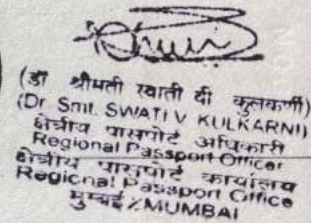 (डॉ श्रीमती स्वाती दी कुलकर्णी)
(Dr Smt. SWATI V KULKARNI)
क्षेत्रीय पासपोर्ट अधिकारी
Regional Passport Officer
क्षेत्रीय पासपोर्ट कार्यालय
Regional Passport Office
मुम्बई / MUMBAI